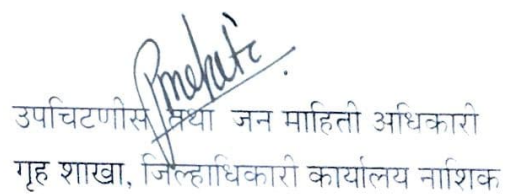 उपचिटणीस तथा जन माहिती अधिकारी
गृह शाखा, जिल्हाधिकारी कार्यालय नाशिक